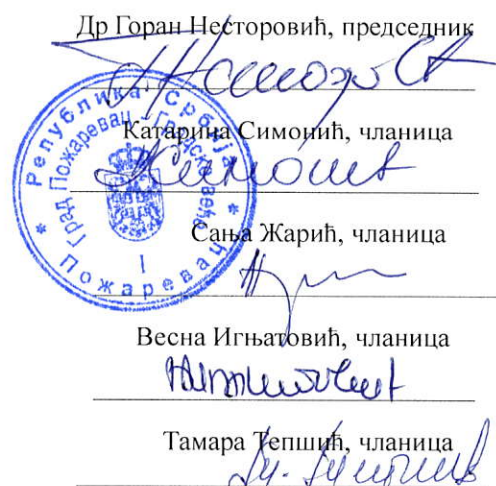 Др Горан Несторовић, председник
Катарина Симонић, чланица
Сања Жарић, чланица
Весна Игњатовић, чланица
Тамара Тепшић, чланица
Република Србија
Град Пожаревац - Градско веће
I
* Пожаревац *